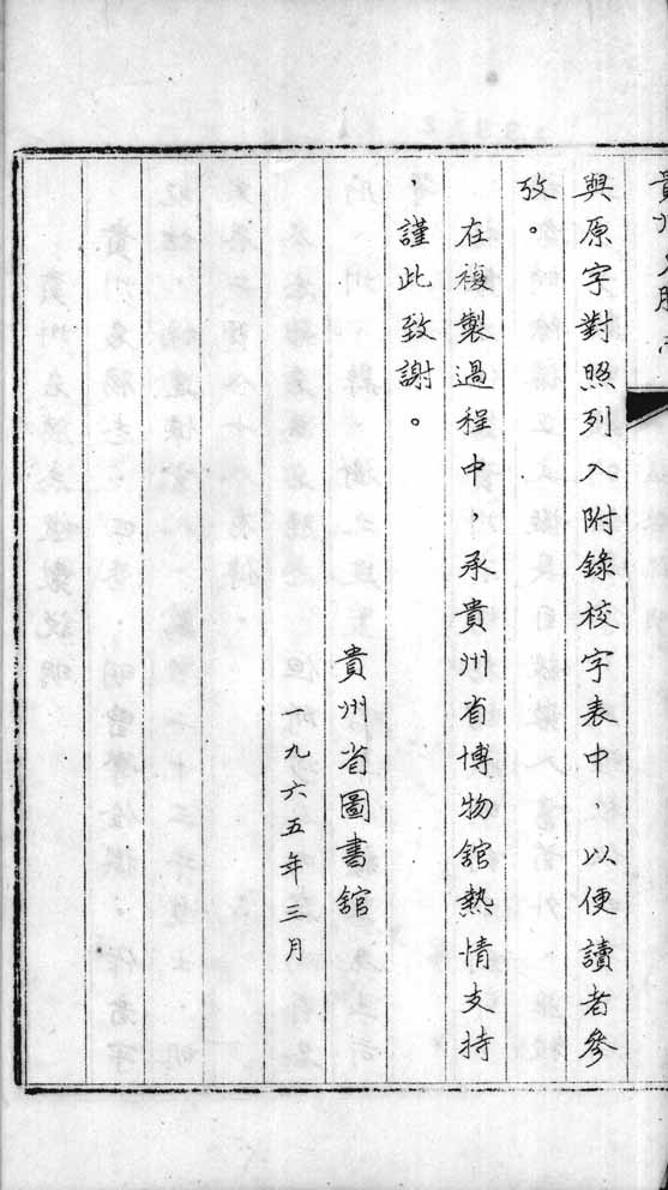 與原字對照列入附錄校字表中，以便讀者參
攷。
在複製過程中，承貴州省博物舘熱情支持
，謹此致謝。
貴州省圖書舘
一九六五年三月